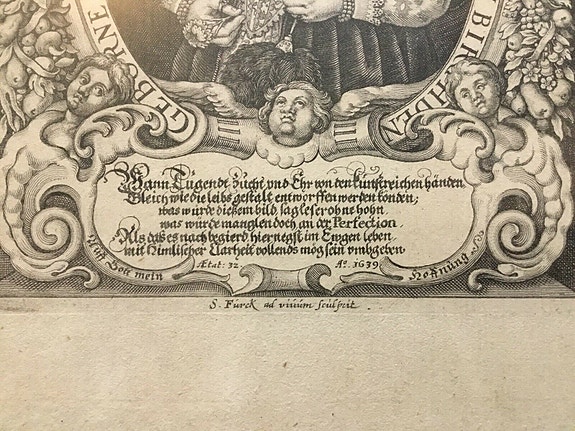 GEBORNE
BIRCKDEN
Wann Tugendt zücht vnd Ehr von den kunstreichen händen
Gleich wie die leibs gestalt entworffen werden konden;
was würde dießem bild, sag leser ohne hohn,
was würde manglen doch an der Perfection.
Als daß es nach begierd hiernegst im Ewgen leben
mit Himlischer Clarheit vollends mög sein vmbgeben
Ætat: 32 Aº. 1639
Auff Gott mein Hoffnung
S. Furck ad viuum sculpsit.